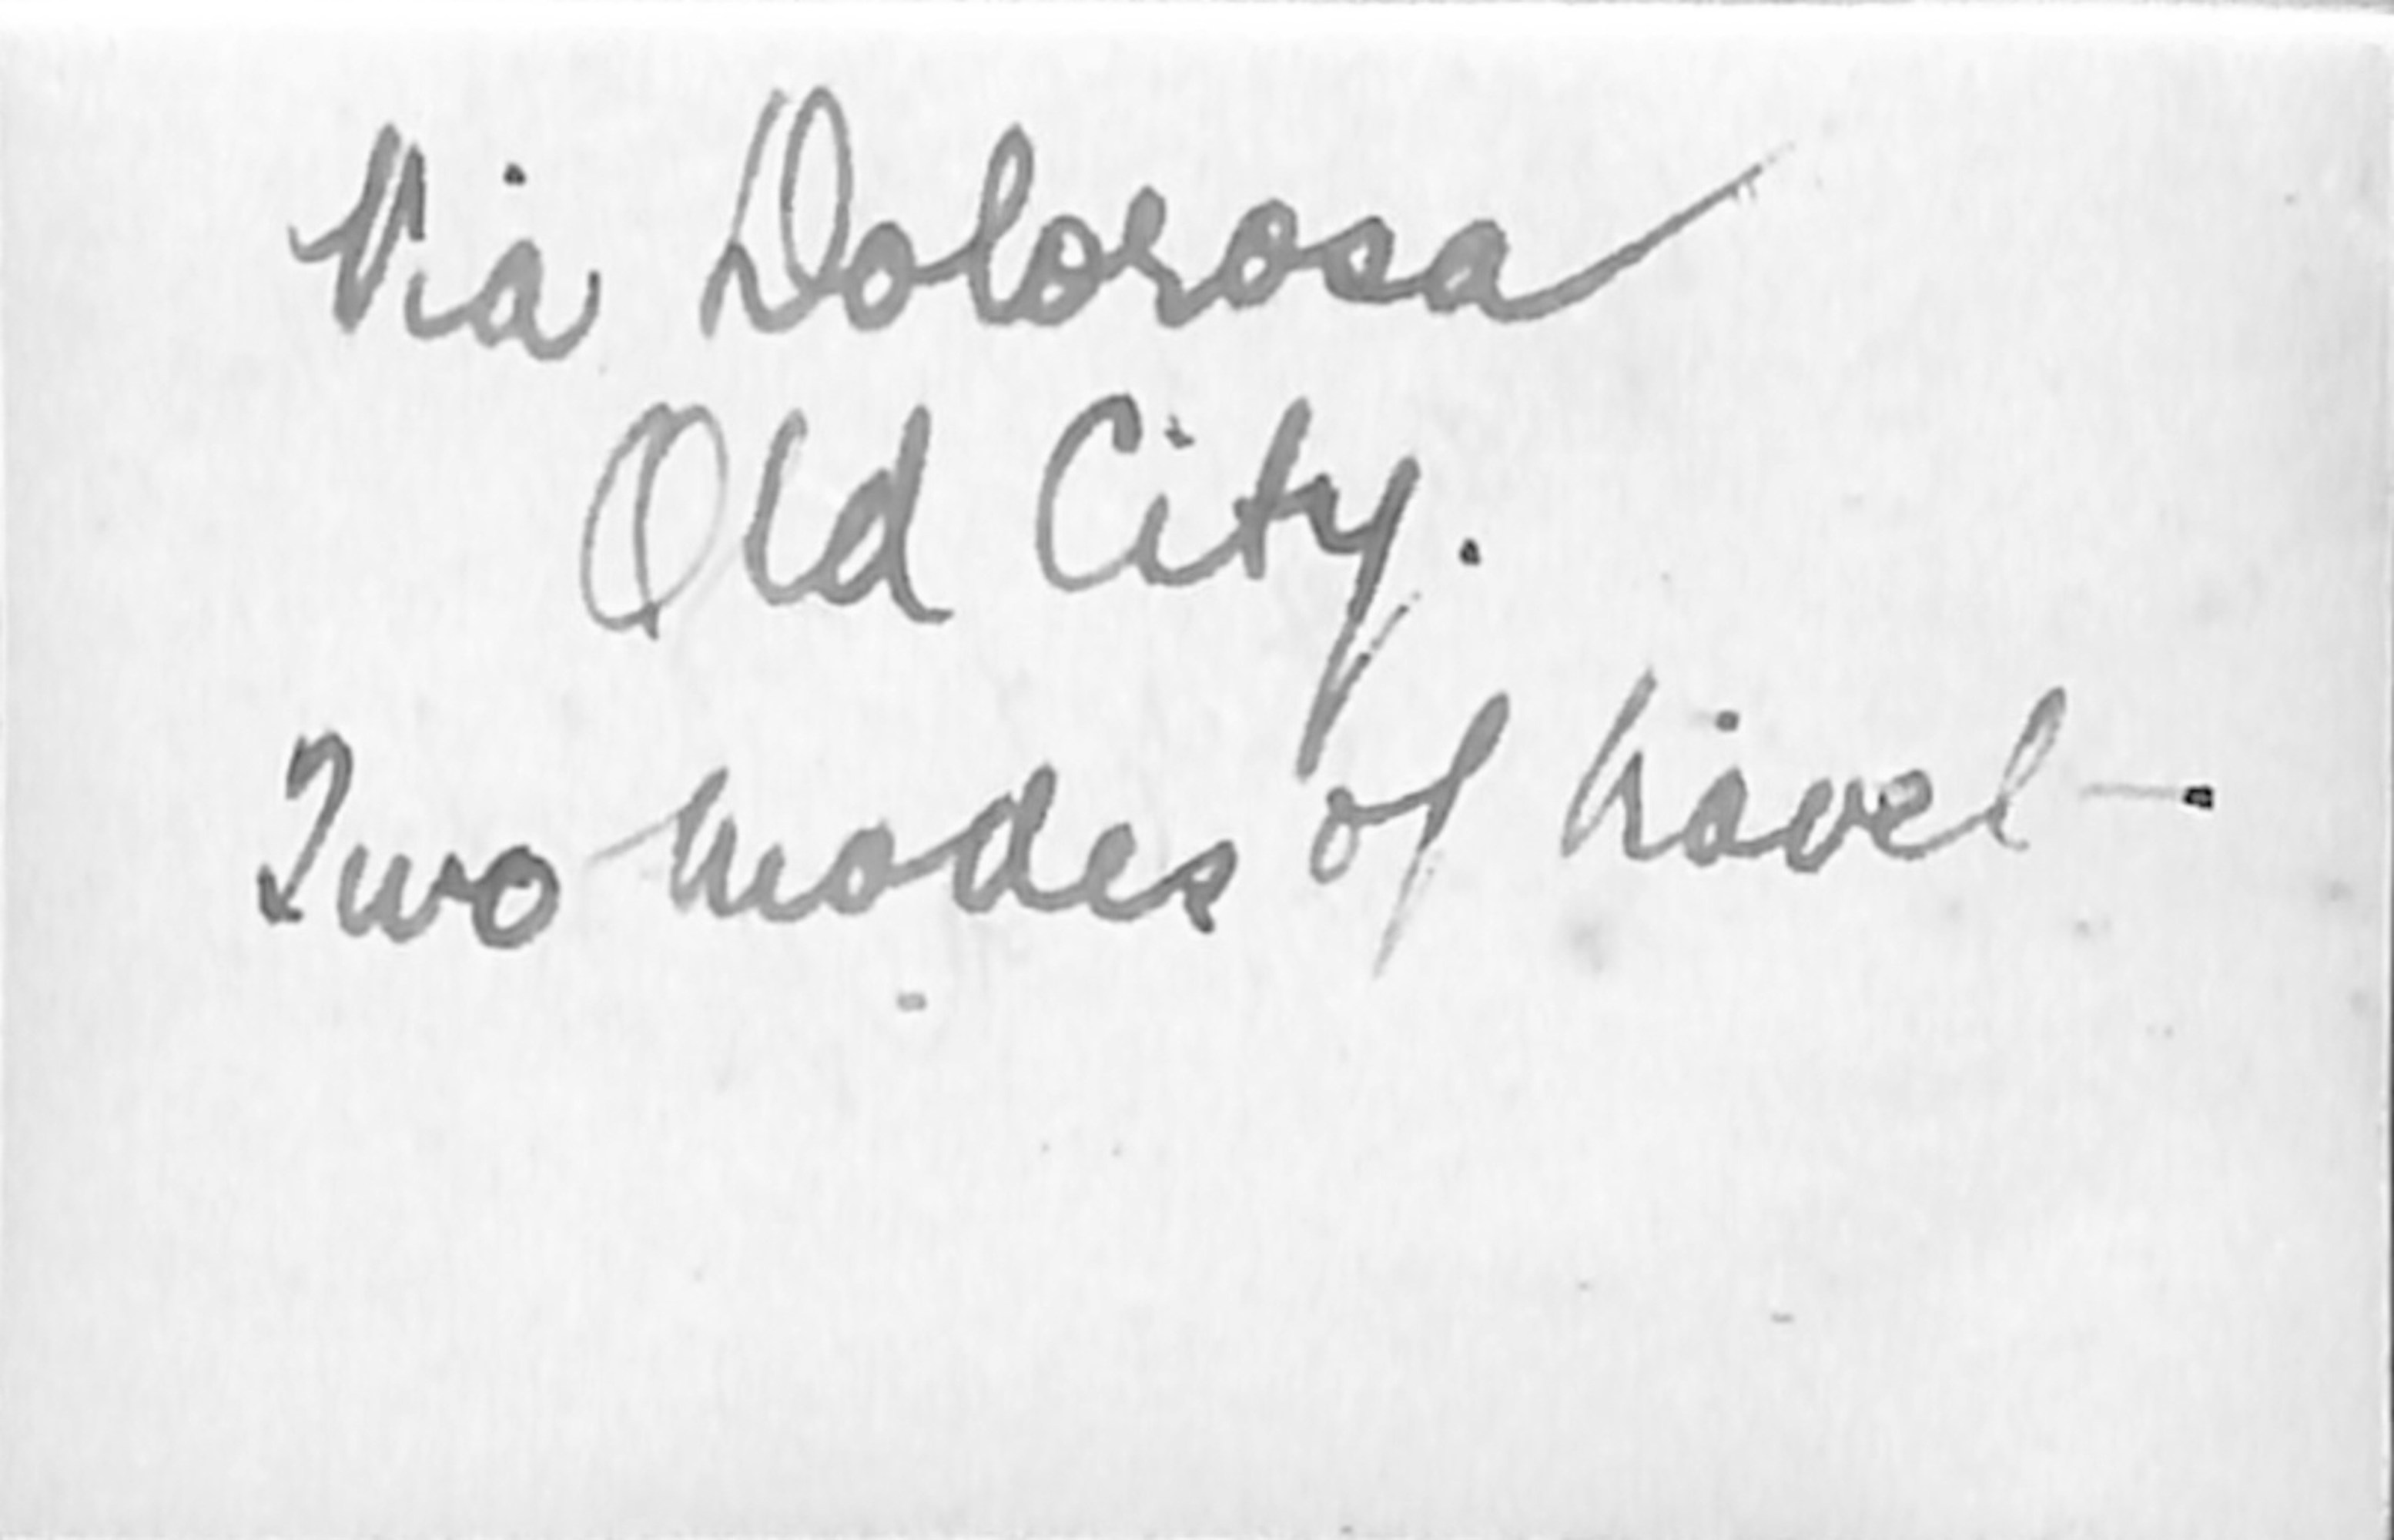 Via Dolorosa
Old City.
Two modes of travel -